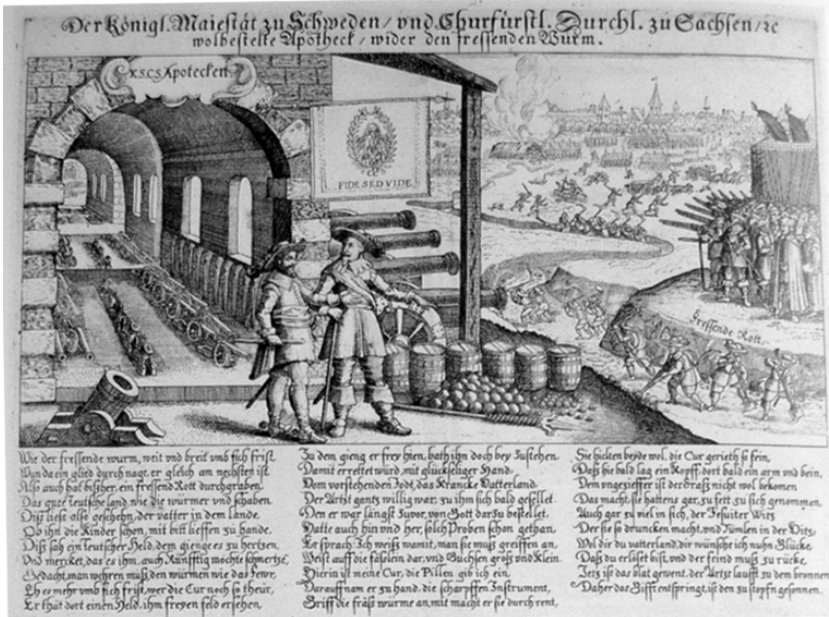 Der Königl. Maiestät zu Schweden / vnd Churfürstl. Durchl. zu Sachsen / ꝛc
wolbestelte Apotheck / wider den fressenden Wurm.
K.S.C.S Apotecken
FIDE SED VIDE
Fressende Rott.
Wie der fressende wurm, weit vnd breit vmb sich frist
Wan da ein glied durch nagt, er gleich am nechsten ist
Also auch hat bisher, ein fressend Rott durchgraben
Das gute teutsche land, wie die würmer vnd schaben
Diß liest also geschehn, der vatter in dem lande,
Ob ihn die Kinder schon, mit bitt lieffen zu hande.
Diß sah ein teutscher Held, dem gienge es zu hertzen,
Vnd mercket, das es ihm, auch künfftig möchte schmertzē,
Gedacht, man wehren muß, den würmen wie das fewr,
Eh es mehr vmb sich frist, wer die Cur noch so theur,
Er thät dort einen Held, ihm freyen feld ersehen,
Zu dem gieng er frey hien, bath ihn doch bey zustehen
Damit errettet würd, mit glückseliger Hand
Vom vorstehenden Todt, das Krancke Vatterland
Der Artzt gantz willig war, zu ihm sich bald gesellet
Den er war längst zuvor, von Gott darzu bestellet.
Hatte auch hin vnd her, solch Proben schon gethan,
Er sprach Ich weiß wamit, man sie muß greiffen an,
Weist auff die fäßlein dar, vnd Buchsen groß vnd Klein
Hierin ist meine Cur, die Pillen gib ich ein.
Darauff nam er zu hand, die scharpffen Instrument,
Griff die fräß würme an, mit macht er sie durch rent,
Sie hielten beyde wol, die Cur gerieth so fein,
Daß hie bald lag ein Kopff, dort bald ein arm vnd bein,
Dem vngezieffer ist der fraß nicht wol bekomen
Das macht, sie hattens gar, zu fett zu sich genommen,
Auch gar zu viel in sich, der Jesuiter Witz
Der sie so druncken macht, vnd tümlen in der Hitz,
Wol dir du vatterland, dir wünsche ich nuhn Glücke,
Daß du erlöset bist, vnd der feind muß zu rücke,
Jetz ist das blat gewent, der Artzt laufft zu dem brunnen
Daher das Gifft entspringt, ist den zu stopfn gesonnen.